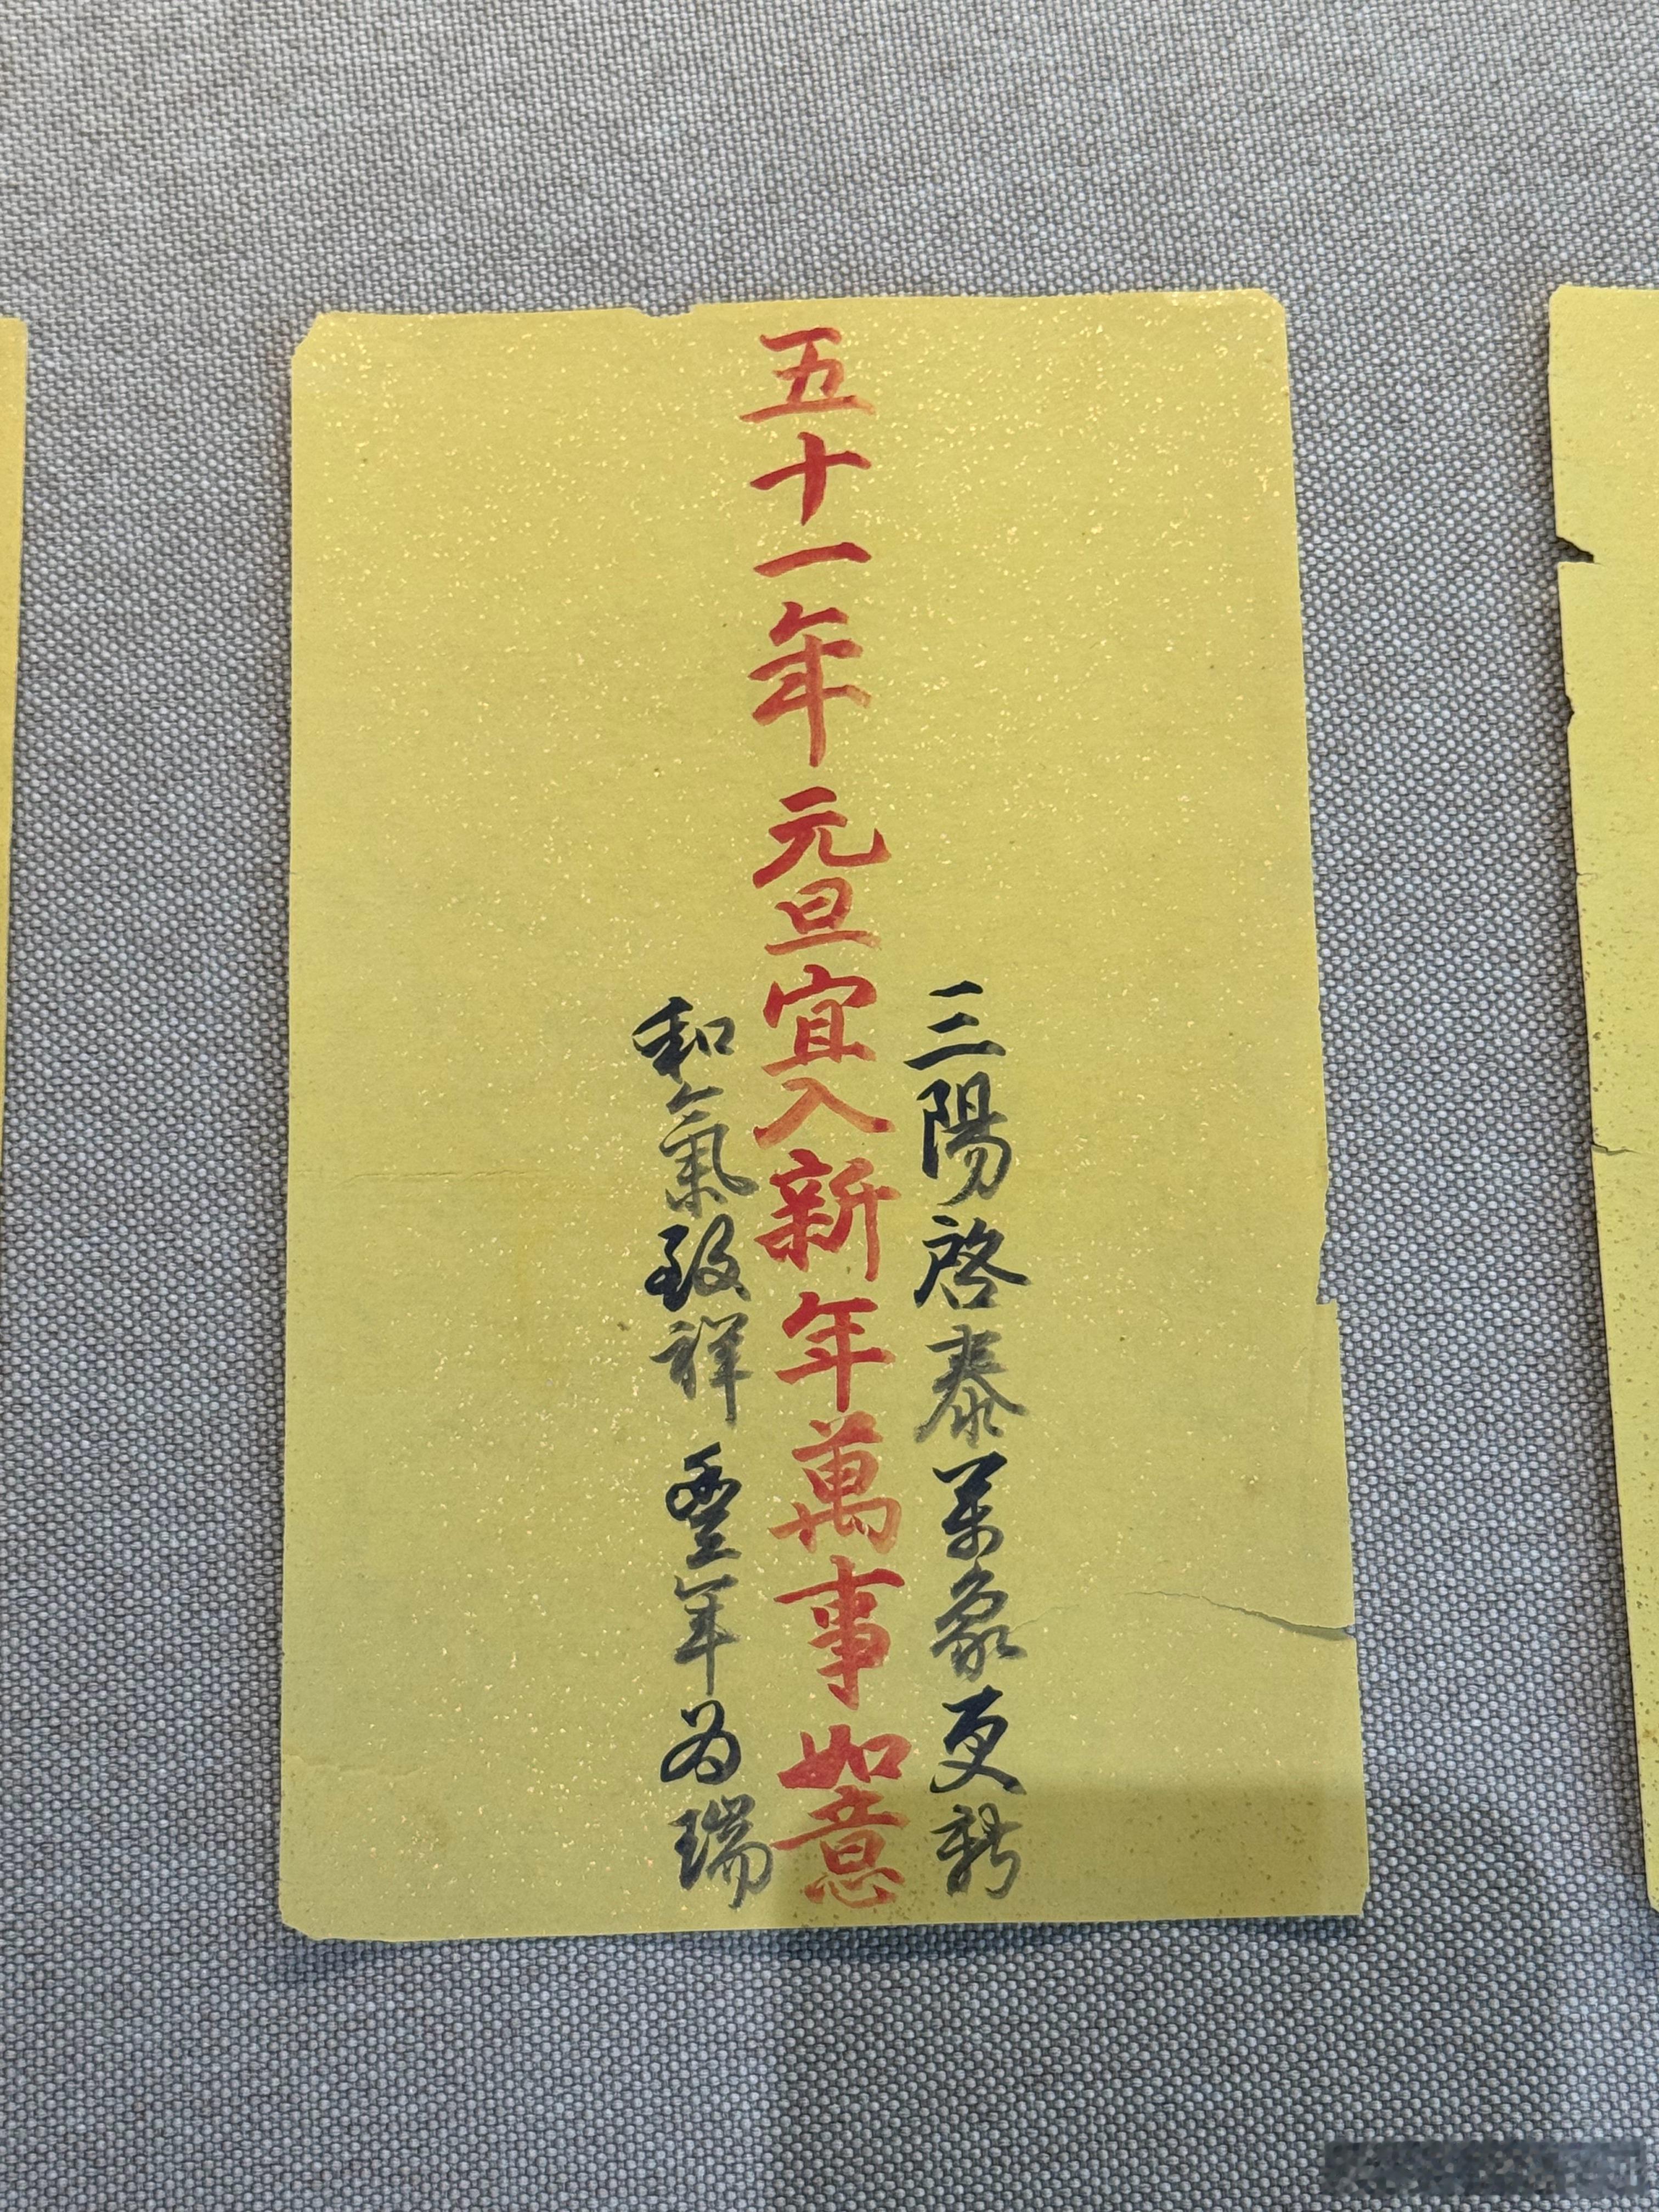 三陽啓泰萬象更新
五十一年元旦宜入新年萬事如意
和氣致祥豐年為瑞